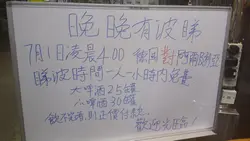 晚晚有波睇
7月1日凌晨4:00 德國對阿爾及利亞
睇波時間一人一小時內免費
大啤酒25罐
小啤酒30罐
飲不完時則正價付款
歡迎光臨!